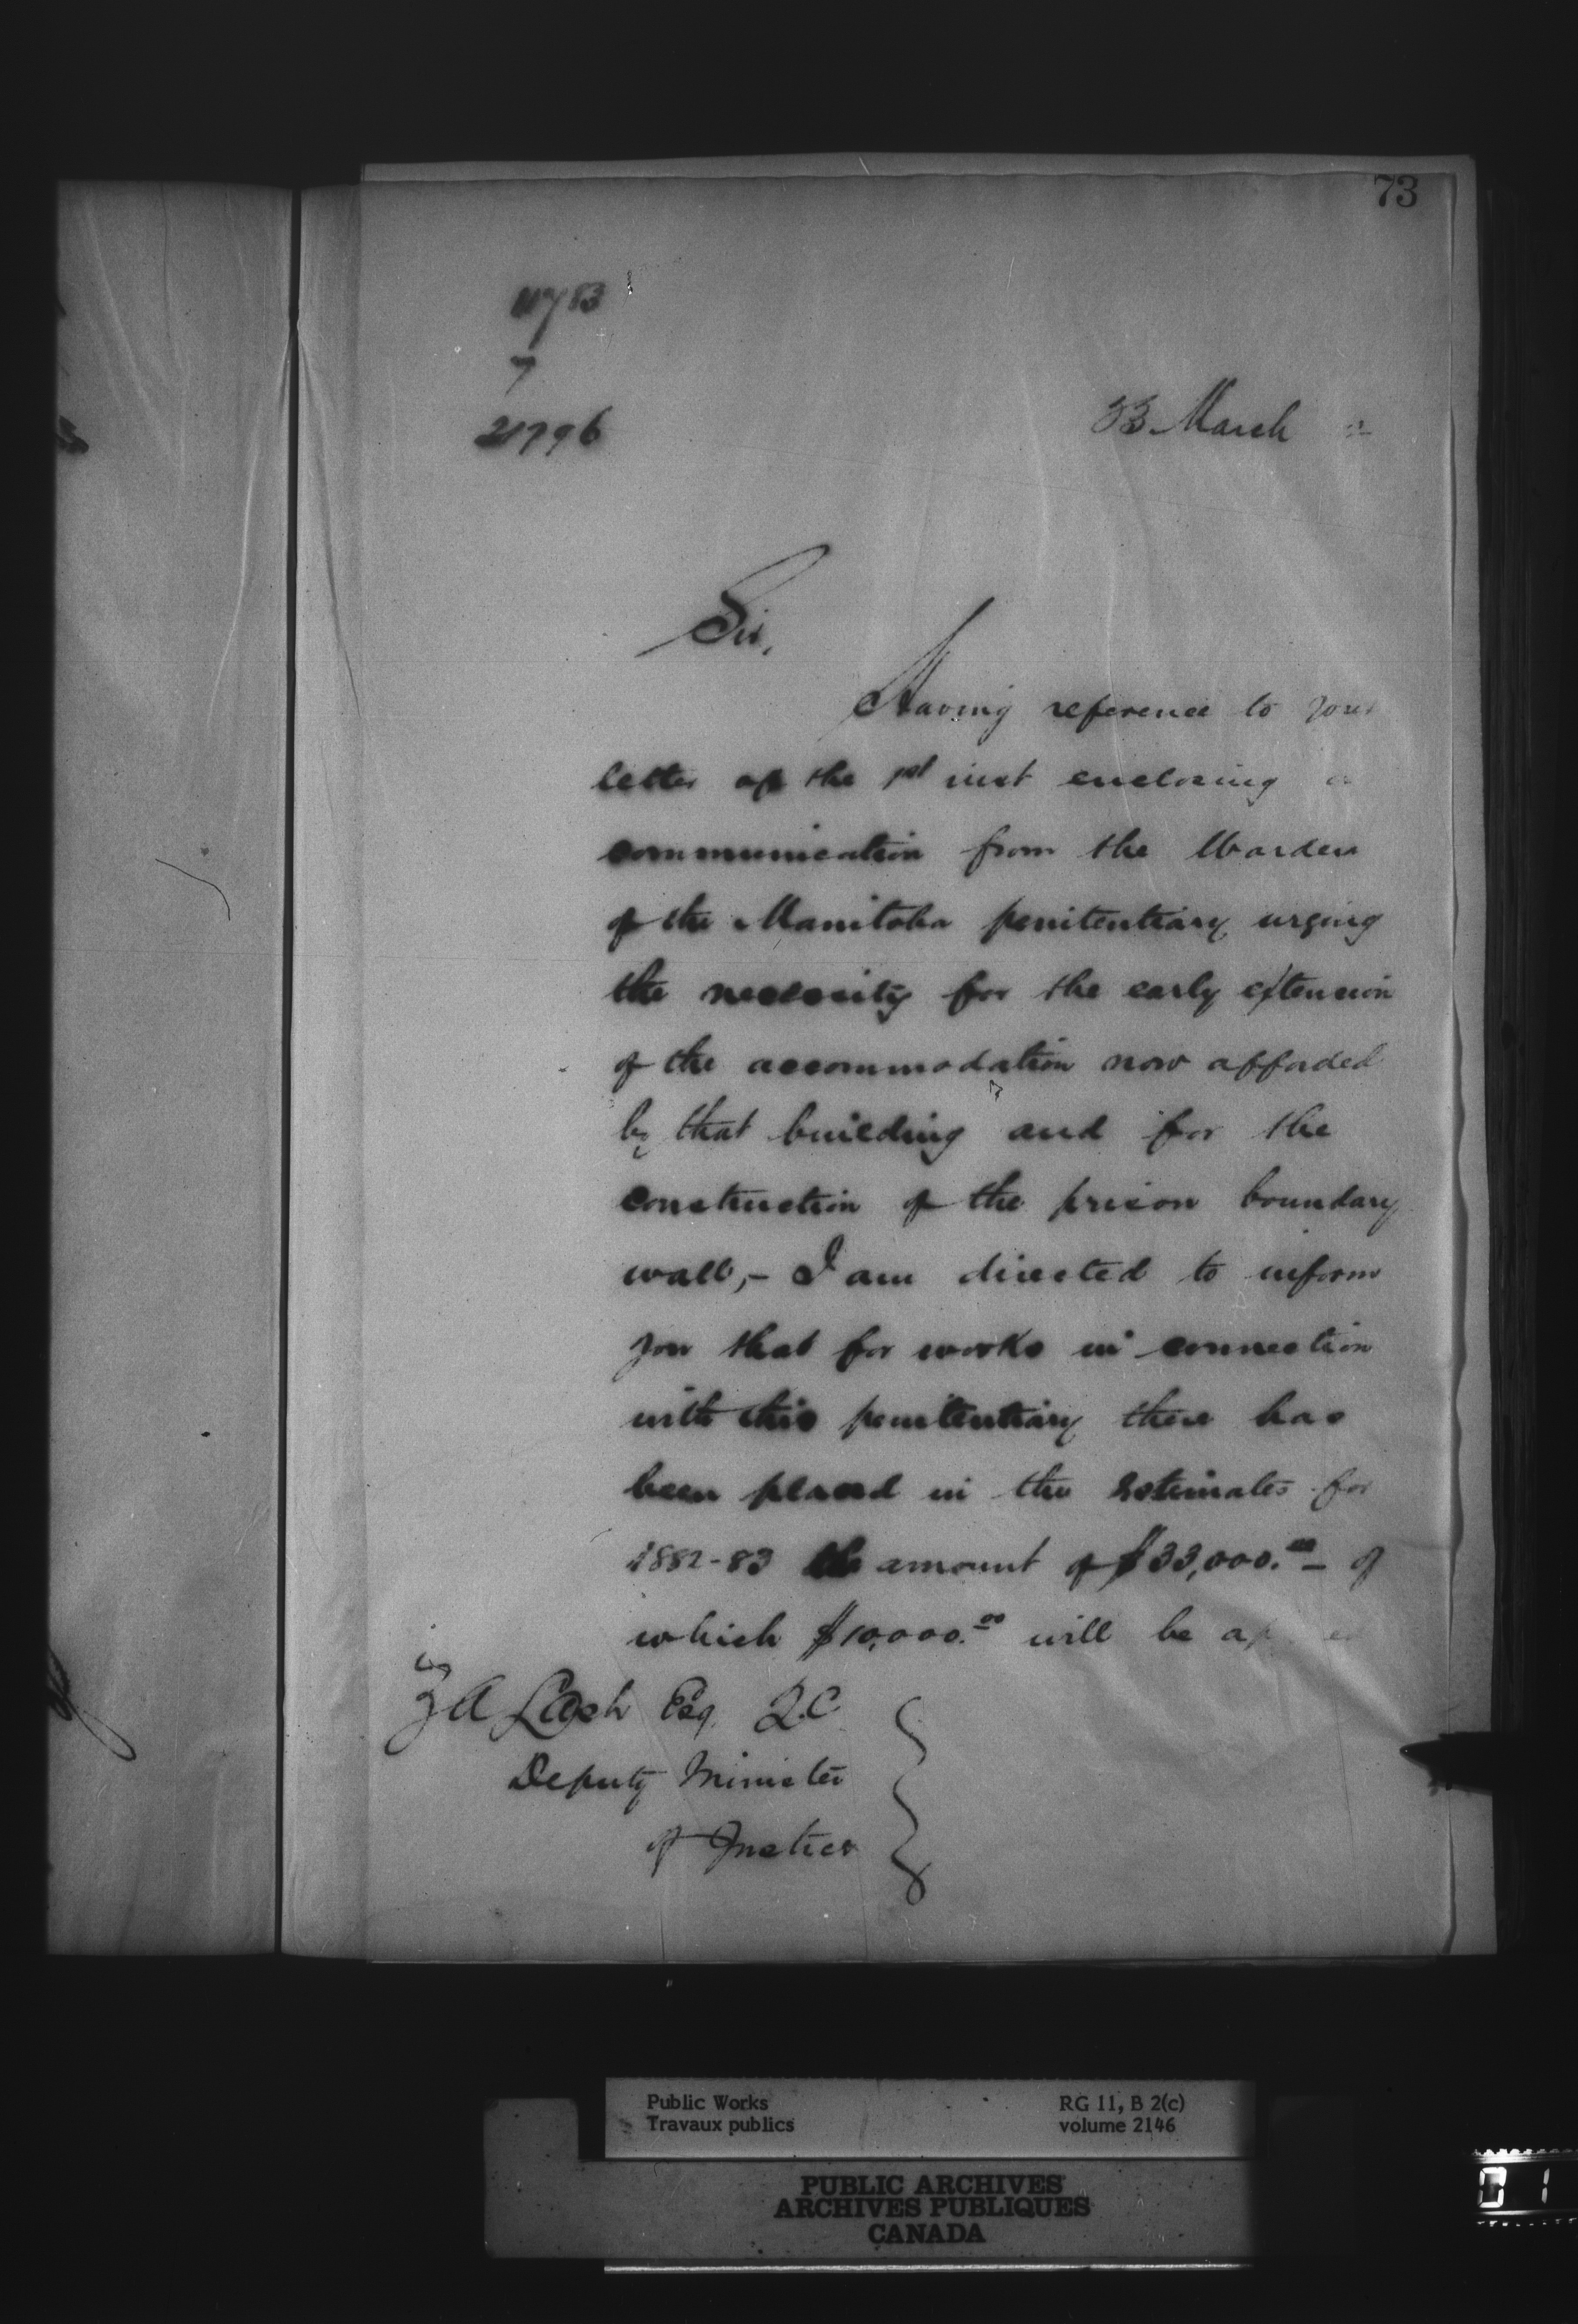 73
11783
7
21796
23 March
Sir,
Having reference to your
letter of the 1st inst enclosing a
communication from the Warden
of the Manitoba penitentiary urging
the necessity for the early extension
of the accommodation now afforded
by that building and for the
construction of the prison boundary
wall,- I am directed to inform
you that for works in connection
with this penitentiary there has
been placed in the Estimates for
1882-83 the amount of $33,000.00 - of
which $10,000.00 will be
Z A Lash Esq. Q.C
Deputy Minister
of Justice
Public Works
Travaux publics
RG 11, B 2(c)
volume 2146
PUBLIC ARCHIVES
ARCHIVES PUBLIQUES
CANADA